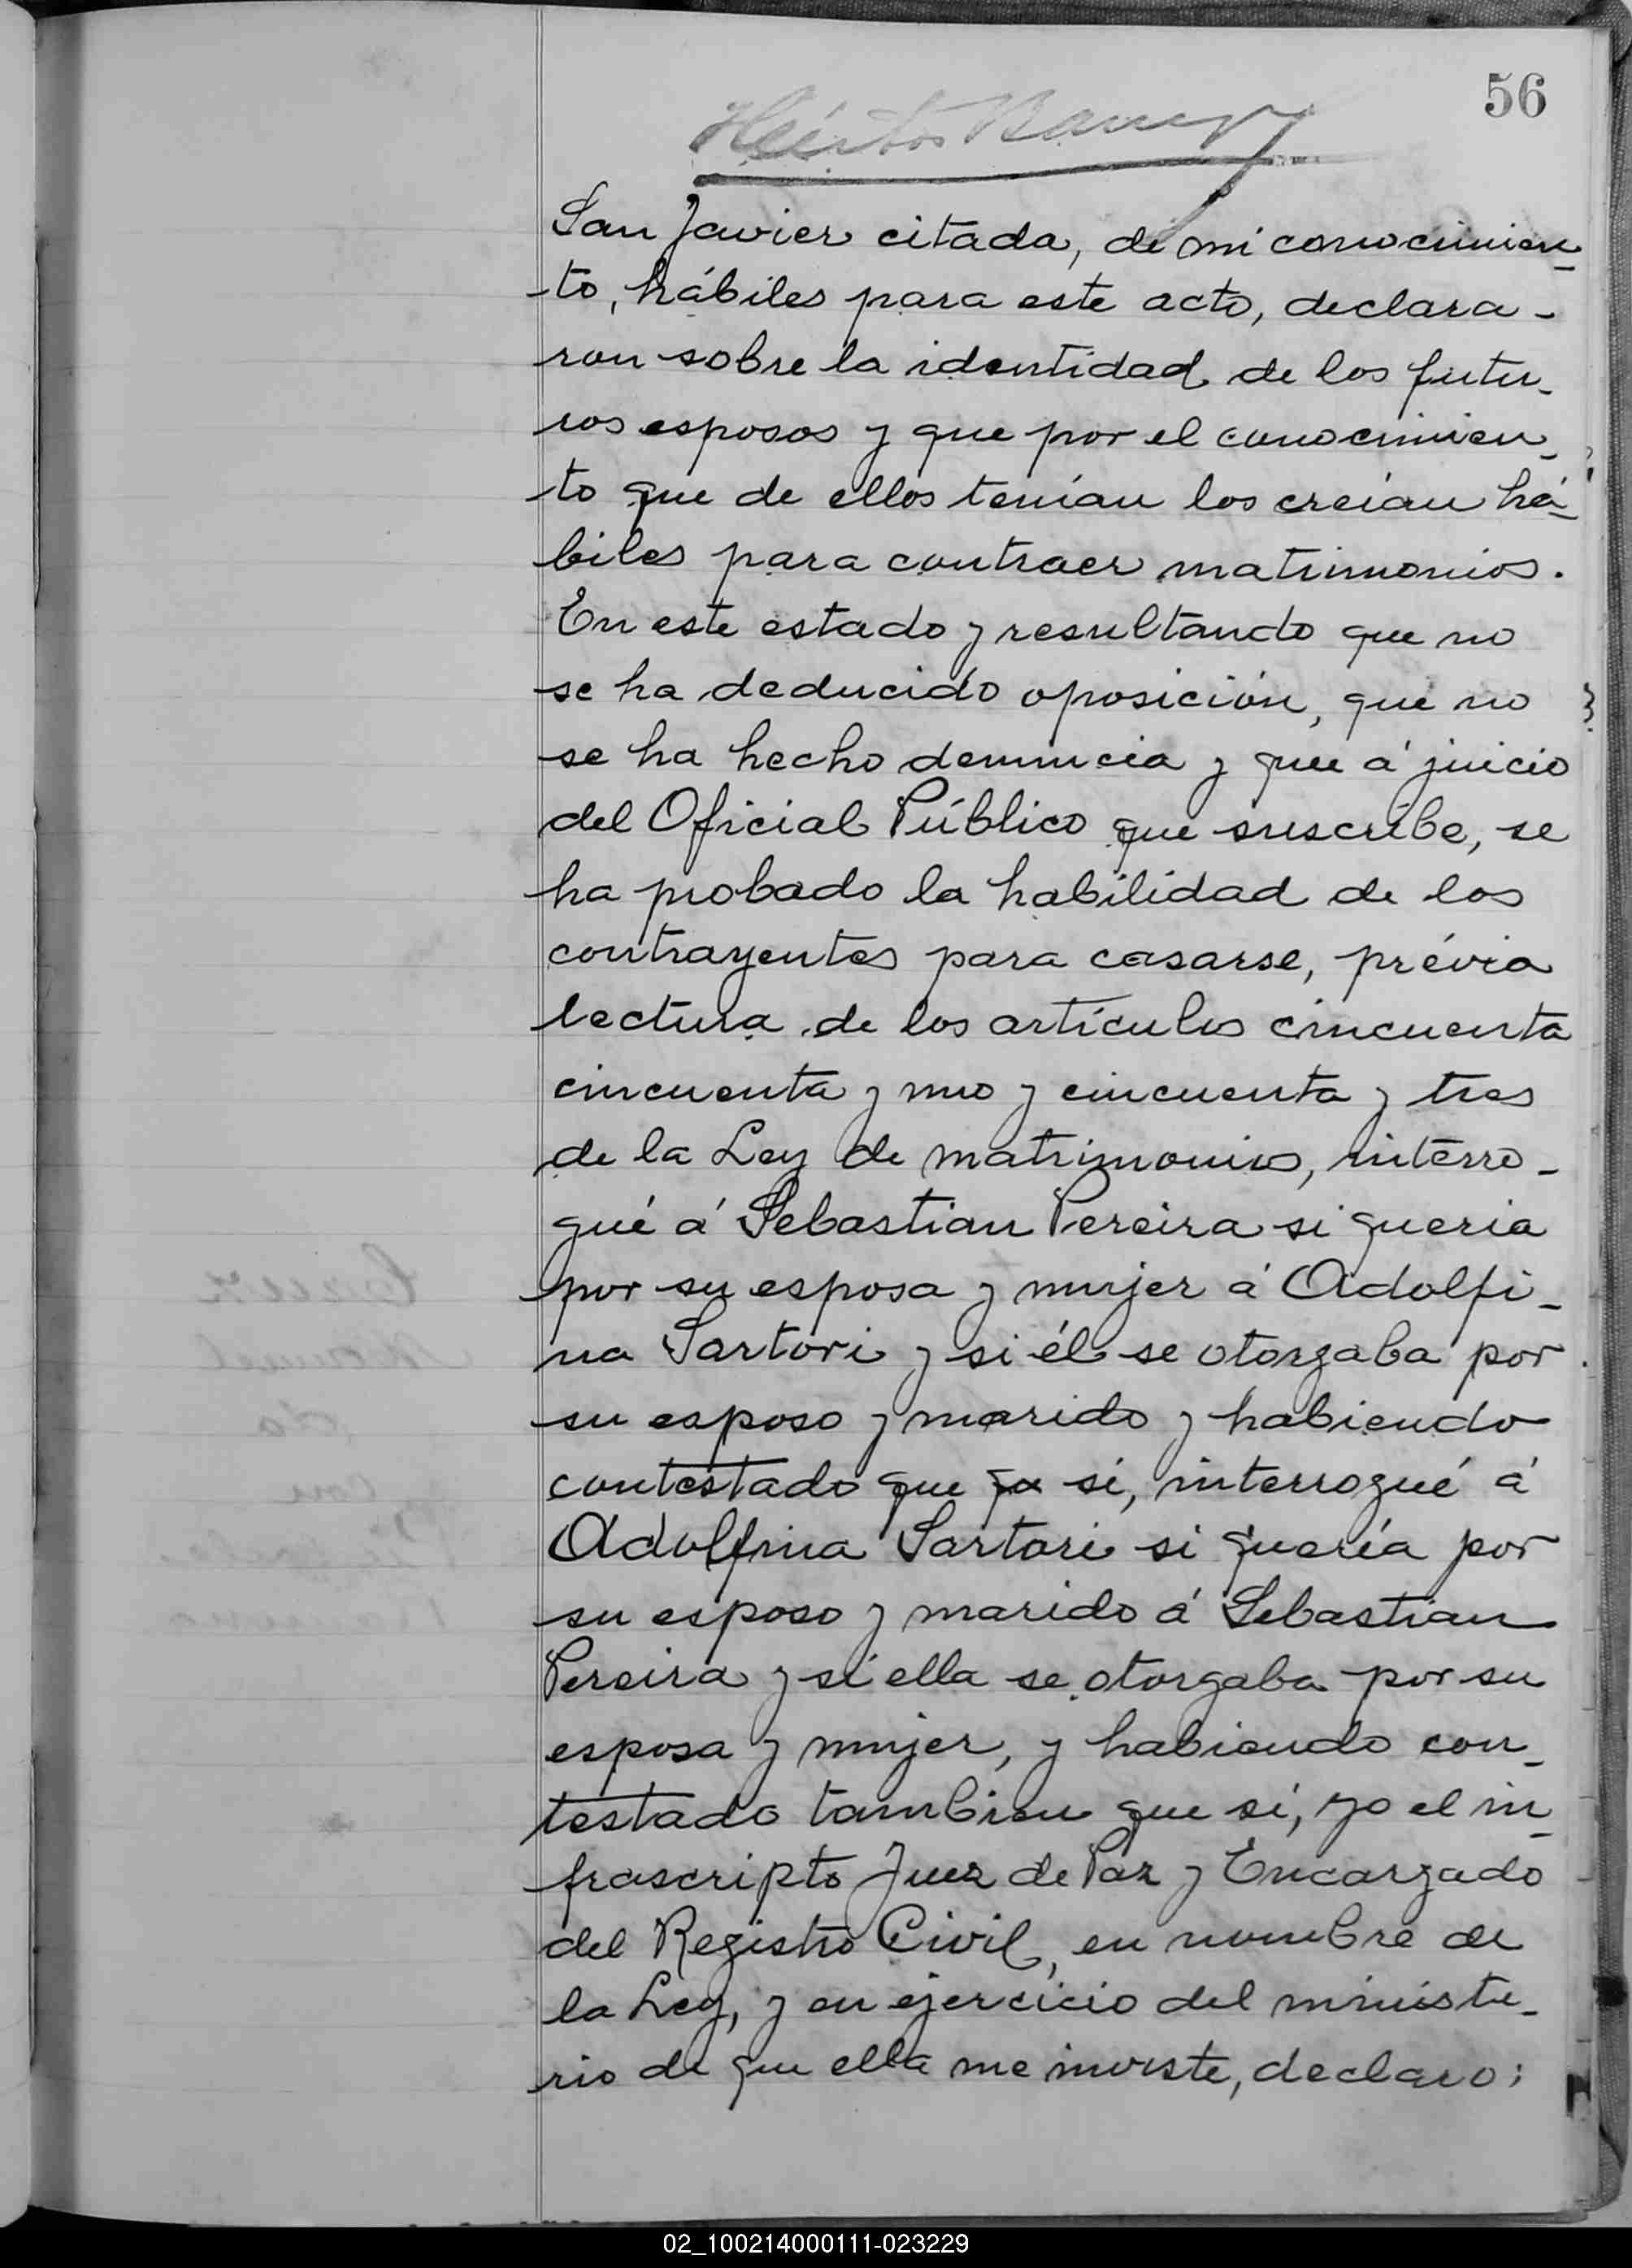 56
San Javier citada, de mi conocimien-
to, hábiles para este acto, declara-
ron sobre la identidad de los futu-
ros esposos y que por el conocimien-
to que de ellos tenían los creían há-
biles para contraer matrimonios.
En este estado y resultando que no
se ha deducido oposición, que no
se ha hecho denuncia y que á juicio
del Oficial Público que suscribe, se
ha probado la habilidad de los
contrayentes para casarse, prévia
lectura de los artículos cincuenta
cincuenta y uno y cincuenta y tres
de la Ley de matrimonios, interro-
gué á Sebastian Pereira si queria
por su esposa y mujer á Adolfi-
na Sartori y si él se otorgaba por
su esposo y marido y habiendo
contestado que si, interrogué á
Adolfina Sartori si quería por
su esposo y marido á Sebastian
Pereira y si ella se otorgaba por su
esposa y mujer, y habiendo con-
testado tambien que si, yo el in-
frascripto Juez de Paz y Encargado
del Registro Civil, en nombre de
la Ley, y en ejercicio del ministe-
rio de que ella me inviste, declaro:
02_100214000111-023229